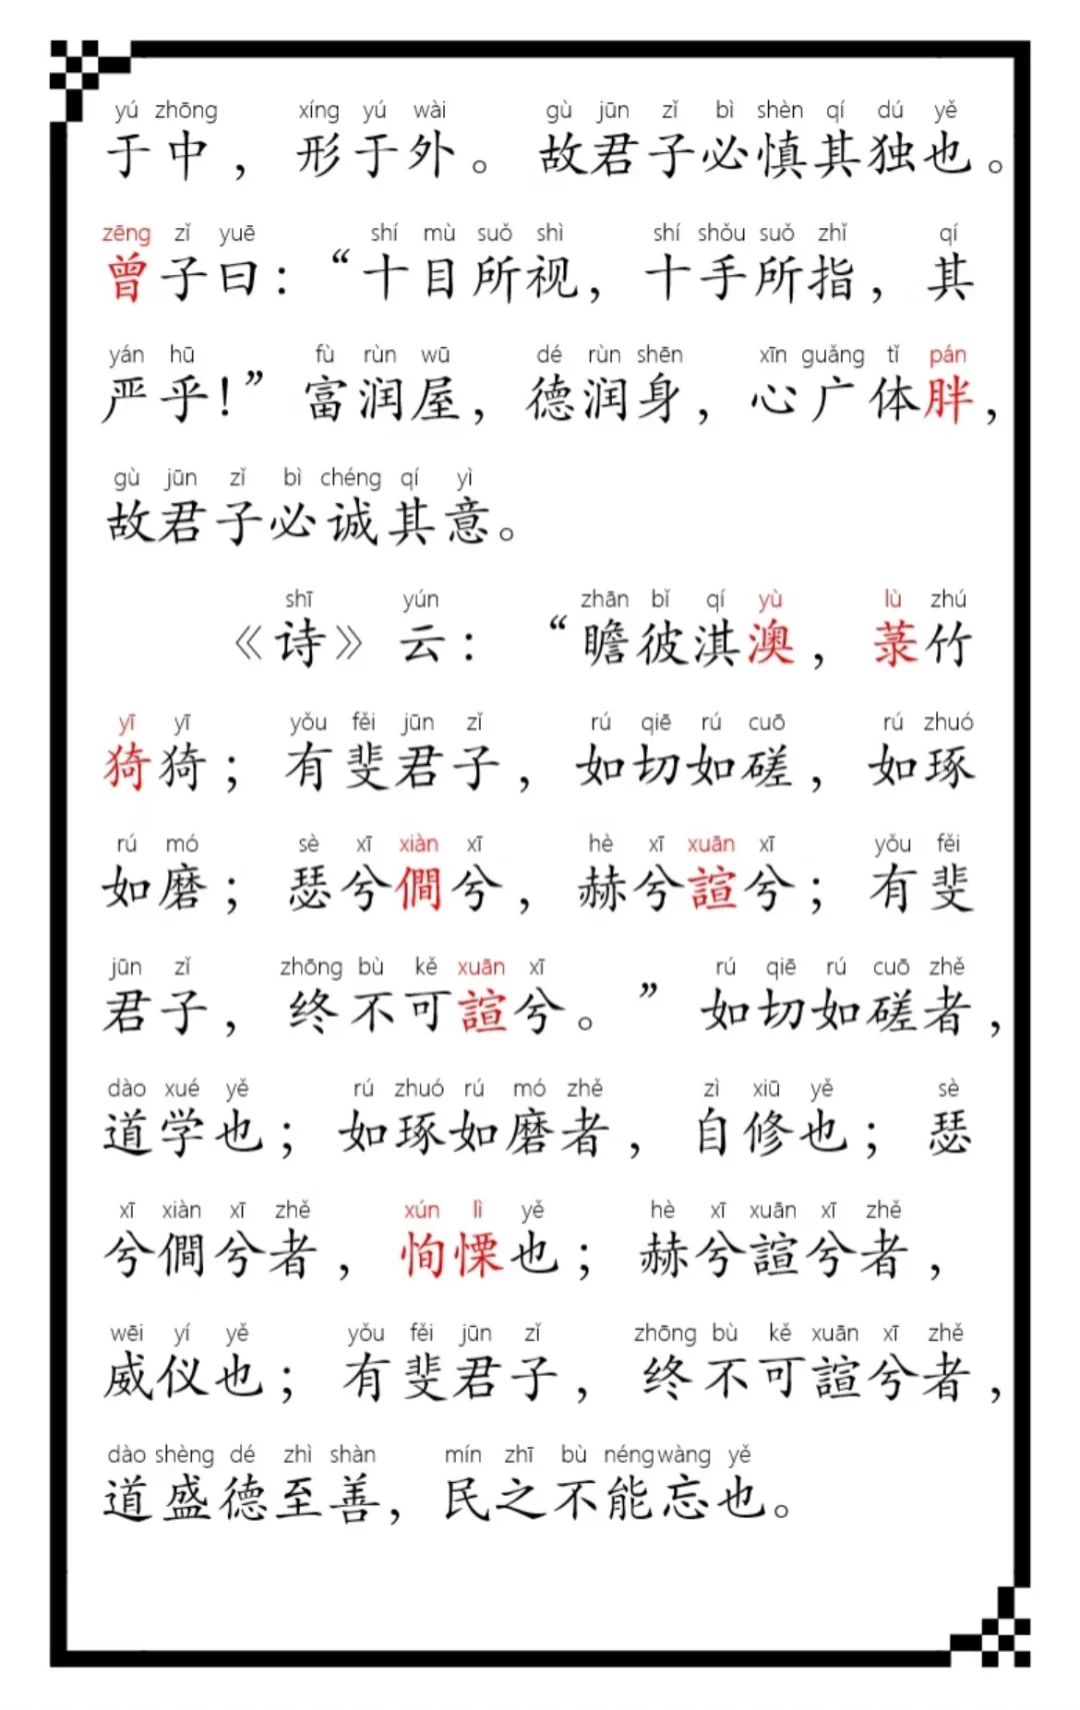 yú zhōng xíng yú wài gù jūn zǐ bì shèn qí dú yě
于中，形于外。故君子必慎其独也。
zēng zǐ yuē shí mù suǒ shì shí shǒu suǒ zhǐ qí
曾子曰：“十目所视，十手所指，其
yán hū fù rùn wū dé rùn shēn xīn guǎng tǐ pán
严乎！”富润屋，德润身，心广体胖，
gù jūn zǐ bì chéng qí yì
故君子必诚其意。
shī yún zhān bǐ qí yù lù zhú
《诗》云：“瞻彼淇澳，菉竹
yī yī yǒu fěi jūn zǐ rú qiē rú cuō rú zhuó
猗猗；有斐君子，如切如磋，如琢
rú mó sè xī xiàn xī hè xī xuān xī yǒu fěi
如磨；瑟兮僩兮，赫兮諠兮；有斐
jūn zǐ zhōng bù kě xuān xī rú qiē rú cuō zhě
君子，终不可諠兮。”如切如磋者，
dào xué yě rú zhuó rú mó zhě zì xiū yě sè
道学也；如琢如磨者，自修也；瑟
xī xiàn xī zhě xún lì yě hè xī xuān xī zhě
兮僩兮者，恂慄也；赫兮諠兮者，
wēi yí yě yǒu fěi jūn zǐ zhōng bù kě xuān xī zhě
威仪也；有斐君子，终不可諠兮者，
dào shèng dé zhì shàn mín zhī bù néng wàng yě
道盛德至善，民之不能忘也。